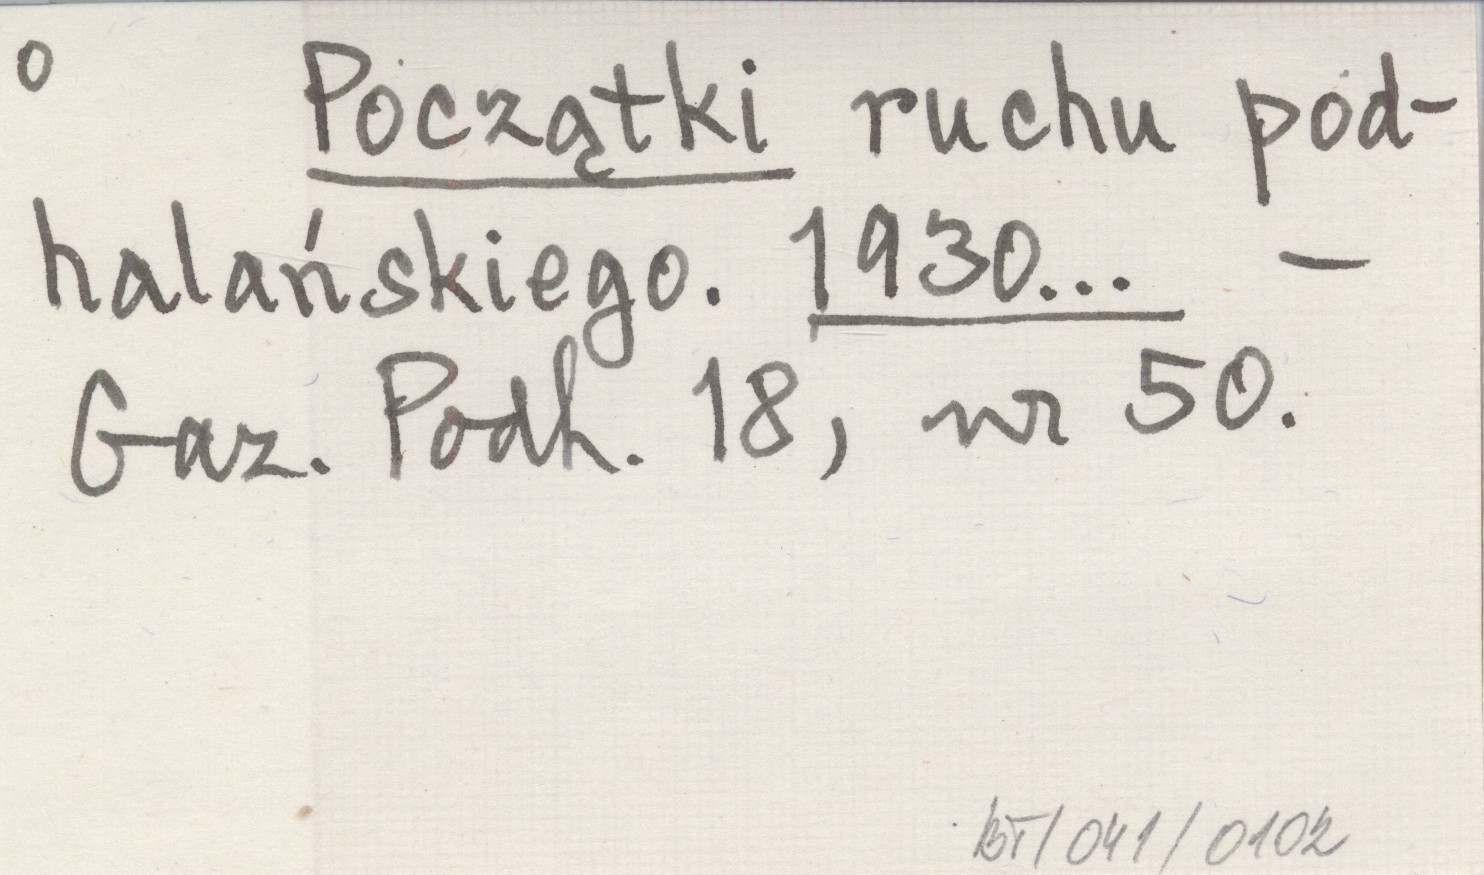 o Początki ruchu pod-
halańskiego. 1930... -
Gaz. Podh. 18, nr 50.
BT/041/0102